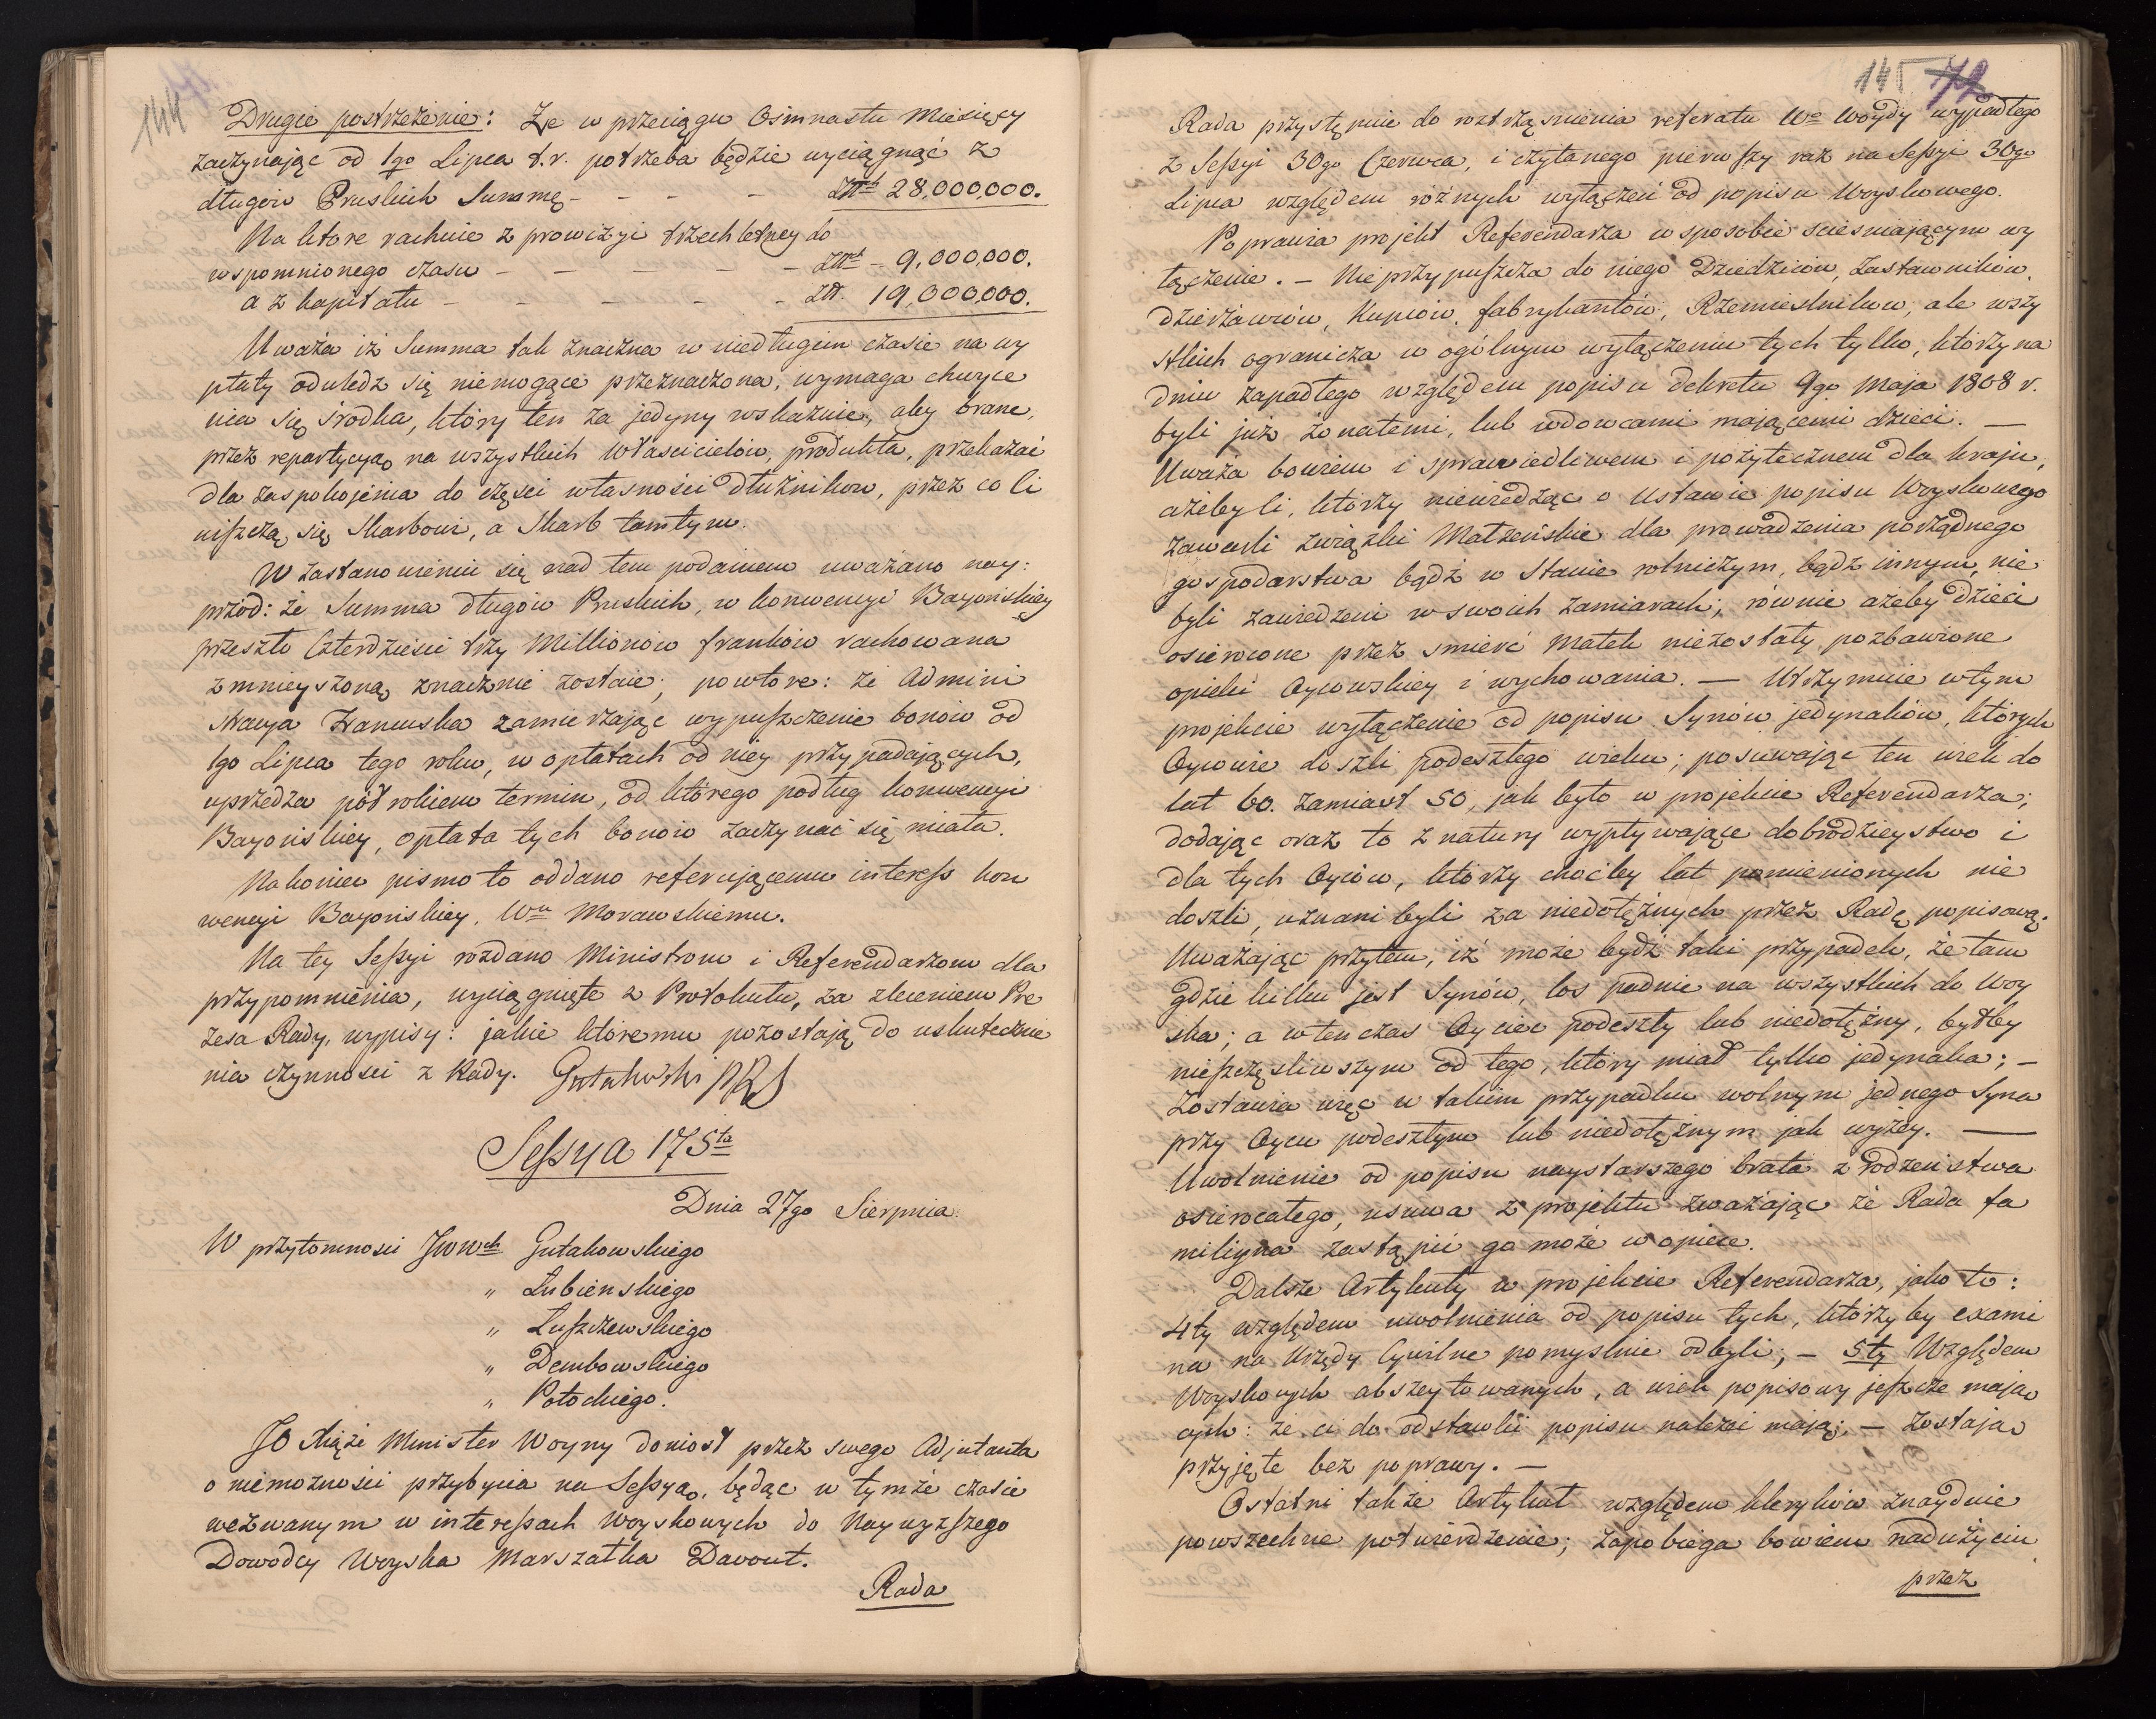 144
Drugie postrzeżenie: Że w przeciągu Ośmnastu Miesięcy
zaczynając od 1go Lipca t.r. potrzeba będzie wyciągnąć z
długów Pruskich Summę - - - - Złt 28,000,000.
Na które rachuie z prowizyi trzechletney do
wspomnionego czasu - - - - - Złt - 9,000,000.
a z kapitału - - - - - Złt. 19,000,000.
Uważa iż Summa tak znaczna w niedługim czasie na wy
płaty odwledz się niemogące przeznaczona, wymaga chwyce
nia się środka, który ten za jedyny wskazuie, aby brane,
przez repartycyą na wszystkich Właścicielów, produkta, przekazać
dla zaspokojenia do części własności Dłużników, przez co ci
niszczą się Skarbowi, a Skarb tamtym.
W zastanowieniu się nad tem podaniem uważano nay:
przód: że Summa długów Pruskich, w konwencyi Bayońskiey
przeszło Czterdzieści trzy Millionów franków rachowana
zmnieyszoną znacznie zostaie; powtore: że Admini
stracya Francuska zamierzając wypuszczenie bonów od
1go Lipca tego roku, w opłatach od niey przypadających,
uprzedza pół rokiem termin, od którego podług konwencyi
Bayońskiey, opłata tych bonów zaczynać się miała.
Nakoniec pismo to oddano referującemu interess kon
wencyi Bayońskiey, Wu Morawskiemu.
Na tey Sessyi rozdano Ministrom i Referendarzom dla
przypomnienia, wyciągnięte z Protokułu, za zleceniem Pre
zesa Rady, wypisy: jakie któremu pozostają do uskutecznie
nia czynności z Rady. Gutakowski PRS
Sessya 175ta
Dnia 27go Sierpnia.
W przytomności JWWch Gutakowskiego
" Łubienskiego
" Łuszczewskiego
" Dembowskiego
" Potockiego.
JO Xiąże Minister Woyny doniosł przez swego Adjutanta
o niemożności przybycia na Sessyą, będąc w tymże czasie
wezwanym w interessach Woyskowych do Naywyższego
Dowodcy Woyska Marszałka Davout.
Rada
145 72
Rada przystępuie do roztrząśnienia referatu Wo Woydy wypadłego
z Sessyi 30go Czerwca, i czytanego pierwszy raz na Sessyi 30go
Lipca względem różnych wyłączeń od popisu Woyskowego.
Poprawia projekt Referendarza w sposobie scieśniającym wy
łączenie. - Nie przypuszcza do niego Dziedziców, Zastawników,
dzierżawców, Kupców, fabrykantów, Rzemieślników, ale wszy
stkich ogranicza w ogólnym wyłączeniu tych tylko, którzy na
dniu zapadłego względem popisu dekretu 9go Maja 1808 r.
byli już żonatemi, lub wdowcami mającemi dzieci. —
Uważa bowiem i sprawiedliwem i pożytecznem dla kraju,
ażeby ci, którzy niewiedząc o Ustawie popisu Woyskowego
zawarli związki Małżeńskie dla prowadzenia porządnego
gospodarstwa bądź w Stanie rolniczym, bądz innym, nie
byli zawiedzeni w swoich zamiarach; równie ażeby dzieci
osierocone przez smierć Matek niezostały pozbawione
opieki Oycowskiey i wychowania. — Utrzymuie w tym
projekcie wyłączenie od popisu Synów jedynaków, których
Oycowie doszli podeszłego wieku; posuwając ten wiek do
lat 60. zamiast 50, jak było w projekcie Referendarza;
dodając oraz to z natury wypływające dobrodzieystwo i
dla tych Oyców, którzy choćby lat pomienionych nie
doszli, uznani byli za niedołężnych przez Radę popisową.
Uważając przytem, iż może bydź taki przypadek, że tam
gdzie kilku jest Synów, los padnie na wszystkich do Woy
ska; a wtenczas Oyciec podeszły lub niedołężny, byłby
nieszczęśliwszym od tego, który miał tylko jedynaka; -
Zostawia więc w takim przypadku wolnym jednego Syna
przy Oycu podeszłym lub niedołężnym jak wyżey. —
Uwolnienie od popisu naystarszego brata z rodzeństwa
osierociałego, usuwa z projektu zważając że Rada fa
miliyna zastąpić go może w opiece.
Dalsze Artykuły w projekcie Referendarza, jako to:
4ty względem uwolnienia od popisu tych, którzy by exami
na na Urzędy Cywilne pomyslnie odbyli; - 5ty Względem
Woyskowych abszeytowanych, a wiek popisowy jeszcze mają
cych: że ci do odstawki popisu należeć mają; - zostają
przyjęte bez poprawy. -
Ostatni także Artykuł względem kleryków znayduie
powszechne potwierdzenie; zapobiega bowiem nadużyciu
przez